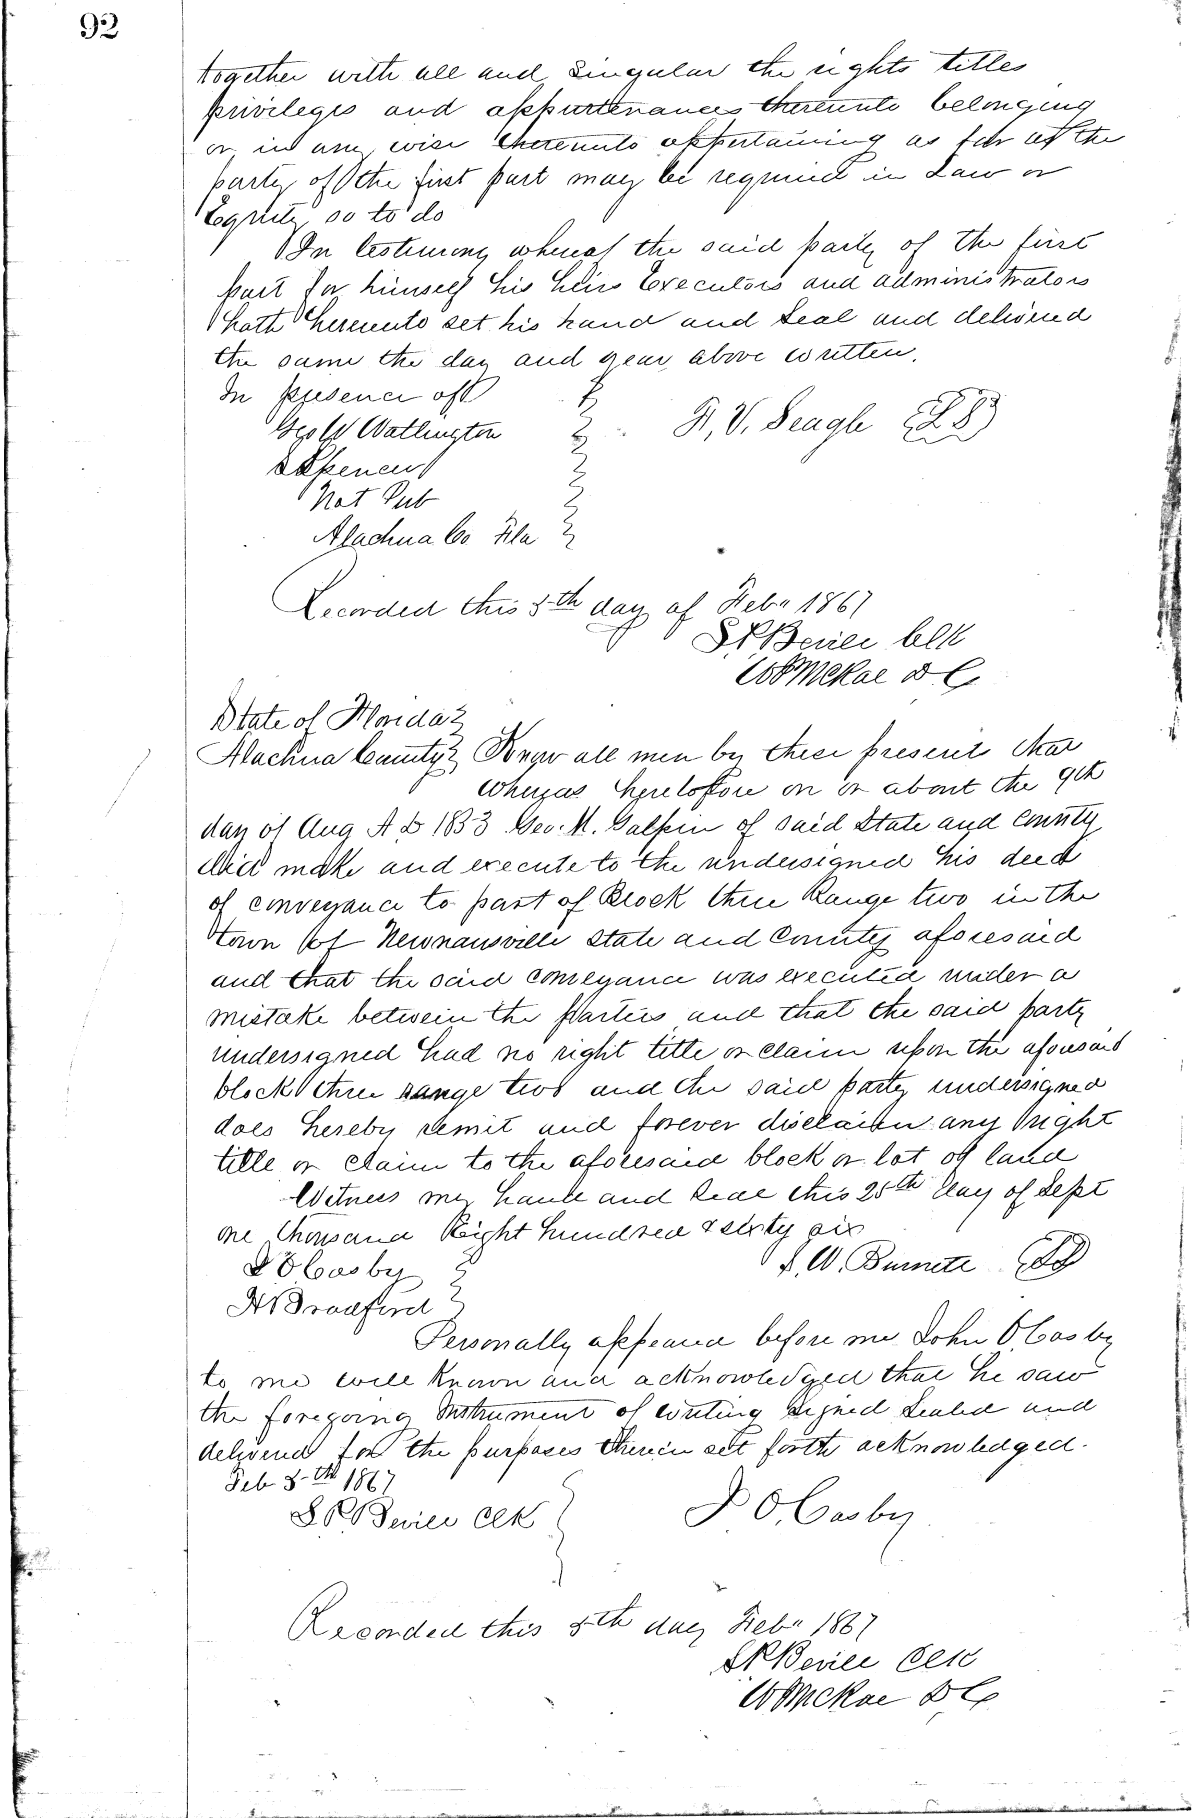 92
together with all and Singular the rights titles
privileges and appurtenances thereunto belonging
or in any wise thereunto appertaining as far as the
party of the first part may be required in Law or
Equity so to do
In testimony whereof the said party of the first
part for himself his heirs Executors and administrators
hath hereunto set his hand and Seal and delivered
the same the day and year above written.
In presence of
Watlington
F. V. Seagle LS
Spencer
Not Pub
Alachua Co Fla
Recorded this 5th day of Feby 1867
S P Bevill Clk
McRae D C
State of Florida
Alachua County Know all men by these present that
Whereas heretofore on or about the 9th
day of Aug A D 1853 Geo. M. Galphin of said State and County
did make and execute to the undersigned his deed
of conveyance to part of Block three Range two in the
town of Newnansville State and County aforesaid
and that the said conveyance was executed under a
mistake between the parties and that the said party
undersigned had no right title or claim upon the aforesaid
block three range two and the said party undersigned
does hereby remit and forever disclaim any right
title or claim to the aforesaid block or lot of land
Witness my hand and Seal this 25th day of Sept
one thousand Eight hundred & sixty six
J O Casby
W. Burnett LS
Bradford
Personally appeared before me John O. Casby
to me well known and acknowledged that he saw
the foregoing Instrument of writing signed Sealed and
delivered for the purposes therein set forth acknowledged.
Feb 5th 1867
S P Bevill Clk
J O. Casby
Recorded this 5th day Feby 1867
S P Bevill Clk
McRae D C